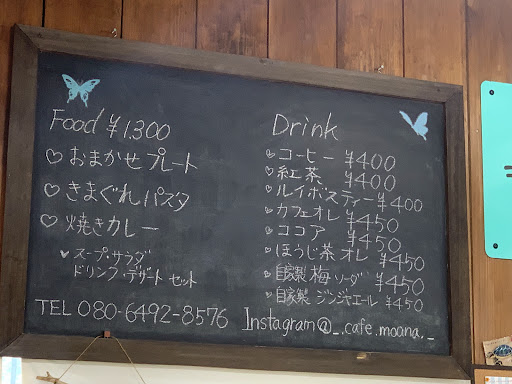 Food ¥1,300
♡ おまかせプレート
♡ きまぐれパスタ
♡ 焼きカレー
♥ スープ・サラダ
ドリンク・デザート セット
TEL 080-6492-8576
Drink
コーヒー ¥400
紅茶 ¥400
ルイボスティー ¥400
カフェオレ ¥450
ココア ¥450
ほうじ茶オレ ¥450
自家製 梅ソーダ ¥450
自家製 ジンジャエール ¥450
Instagram@_.cafe.moana._